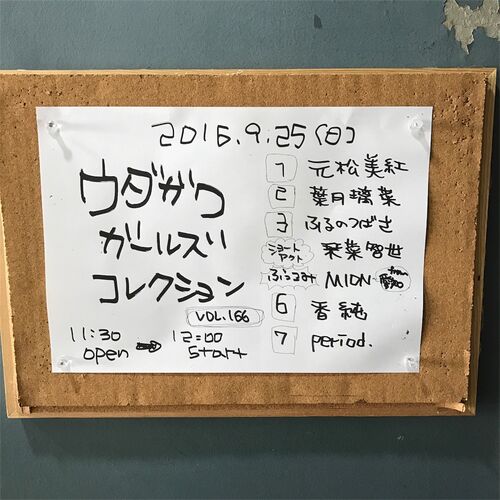 2016.9.25(日)
ウダガワ
ガールズ
コレクション
VOL.166
11:30 open
12:00 start
1 元松美紅
2 葉月璃菜
3 ふるのつばさ
ショートアクト 琹菜智世
ふぅるみ MION
6 香純
7 period.